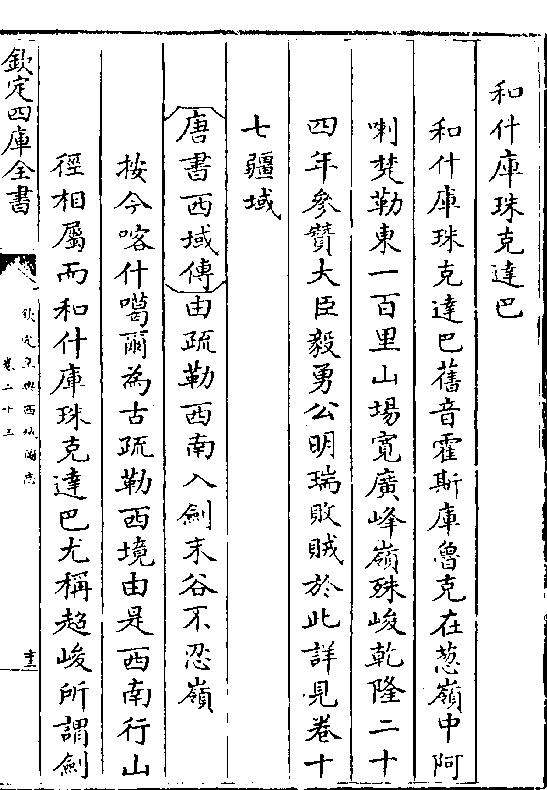 和什庫珠克達巴
和什庫珠克達巴舊音霍斯庫魯克在葱嶺中阿
喇楚勒東一百里山場寬廣峰嶺殊峻乾隆二十
四年參贊大臣毅勇公明瑞敗賊於此詳見卷十
七疆域
唐書西域傳由疏勒西南入劍末谷不忍嶺
按今喀什噶爾為古疏勒西境由是西南行山
徑相屬而和什庫珠克達巴尤稱超峻所謂劍
欽定四庫全書
欽定皇輿西域圖志
卷二十三
十三